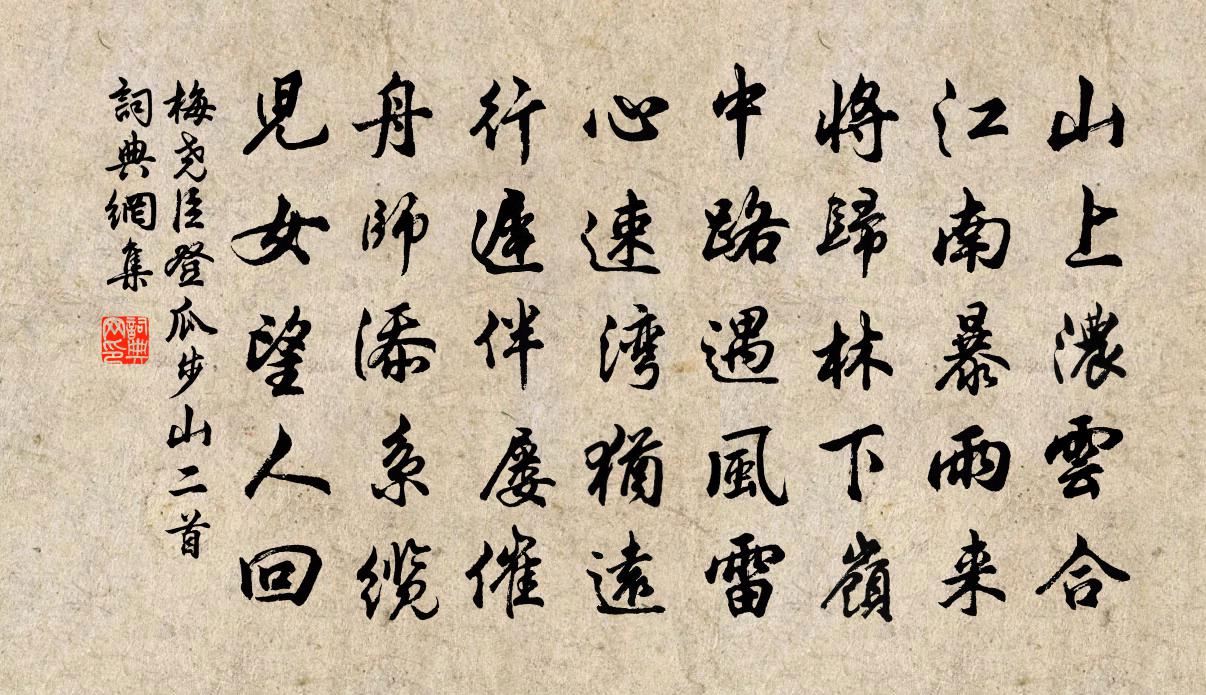 山上濃雲合
江南暴雨来
將歸林下嶺
中路遇風雷
心速湾猶遠
行遲伴屡催
舟師添系缆
児女望人回
梅尧臣登瓜步山二首
詞典網集
詞典网印